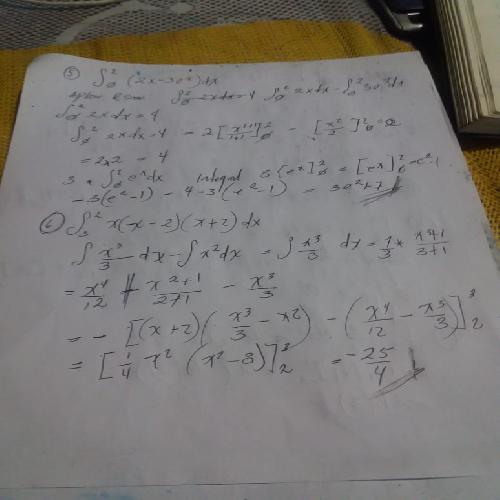 ⑤ ∫₀² (2x-3eˣ)dx
∫₀² 2xdx=4 ∫₀² 2xdx - ∫₀² 3eˣdx
∫₀² 2xdx=4
∫₀² 2xdx=4 - 2[x¹⁺¹/1+1]²₀ - [x²/2]²₀=2
=2×2 = 4
3 * ∫₀² eˣdx Integral 3[eˣ]²₀ = [eˣ]²₀ = e²-1
-3(e²-1) - 4-3(e²-1) = 3e²+7
⑥ ∫₃² x(x-2)(x+2)dx
∫ x³/3 dx - ∫x²dx = ∫ x³/3 dx = 1/3 * x³⁺¹/3+1
= x⁴/12 + x²⁺¹/2+1 - x³/3
= - [(x+2)(x³/3 - x²) - (x⁴/12 - x³/3)]³₂
= [1/4 x² (x²-8)]³₂ = -25/4